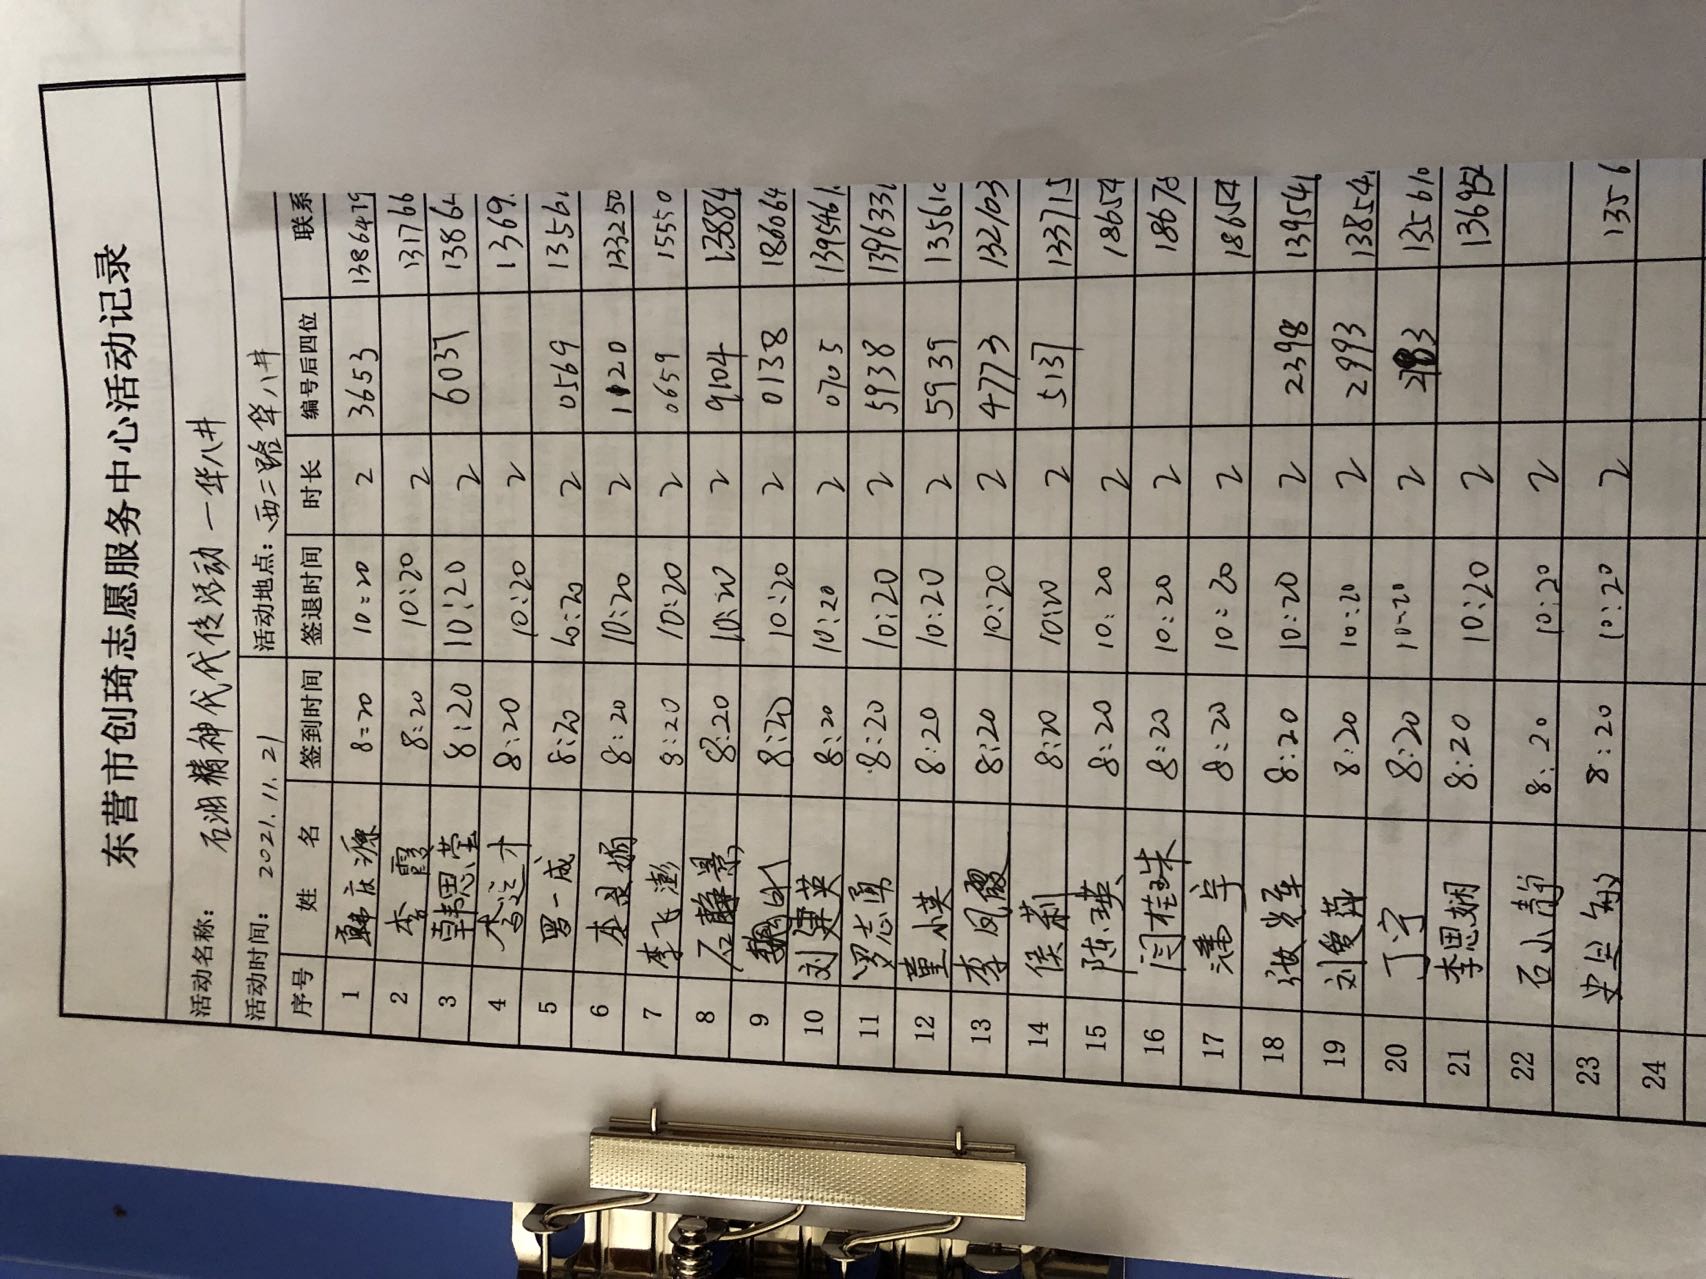 东营市创琦志愿服务中心活动记录
活动名称: 石油精神代代传活动—华八井
活动时间: 2021.11.21 活动地点: 西二路华八井
序号 姓 名 签到时间 签退时间 时长 编号后四位 联系
1 8:20 10:20 2 3653 1386479
2 李霞 8:20 10:20 2 131766
3 韩思莹 8:20 10:20 2 6037 13864
4 8:20 10:20 2 1369
5 罗一成 8:20 10:20 2 0569 13561
6 8:20 10:20 2 1120 133250
7 李飞澎 8:20 10:20 2 0659 15550
8 石静景 8:20 10:20 2 9104 13884
9 8:20 10:20 2 0138 186064
10 刘建英 8:20 10:20 2 0705 1395461
11 罗志勇 8:20 10:20 2 5938 139633
12 董小英 8:20 10:20 2 5939 13561
13 李凤霞 8:20 10:20 2 4773 132103
14 侯莉 8:20 10:20 2 5137 133715
15 陈瑛 8:20 10:20 2 18654
16 闫桂珠 8:20 10:20 2 18678
17 潘宇 8:20 10:20 2 18654
18 8:20 10:20 2 2398 139541
19 刘爱萍 8:20 10:20 2 2993 13854
20 丁宁 8:20 10:20 2 135610
21 李思娴 8:20 10:20 2 13695
22 石小静 8:20 10:20 2
23 8:20 10:20 2 1356
24